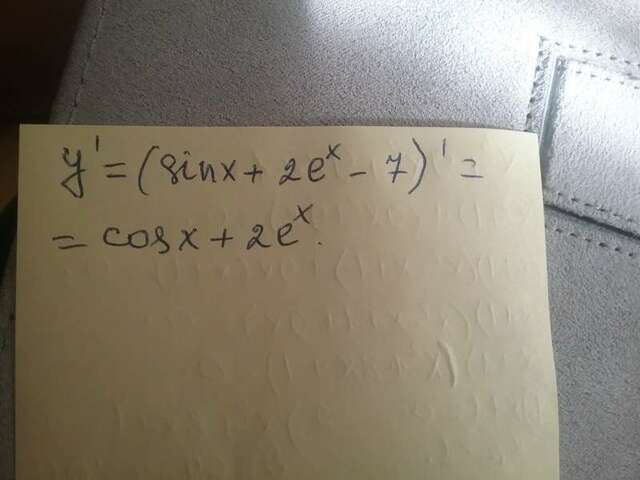 y' = (sinx + 2eˣ - 7)' =
= cosx + 2eˣ.